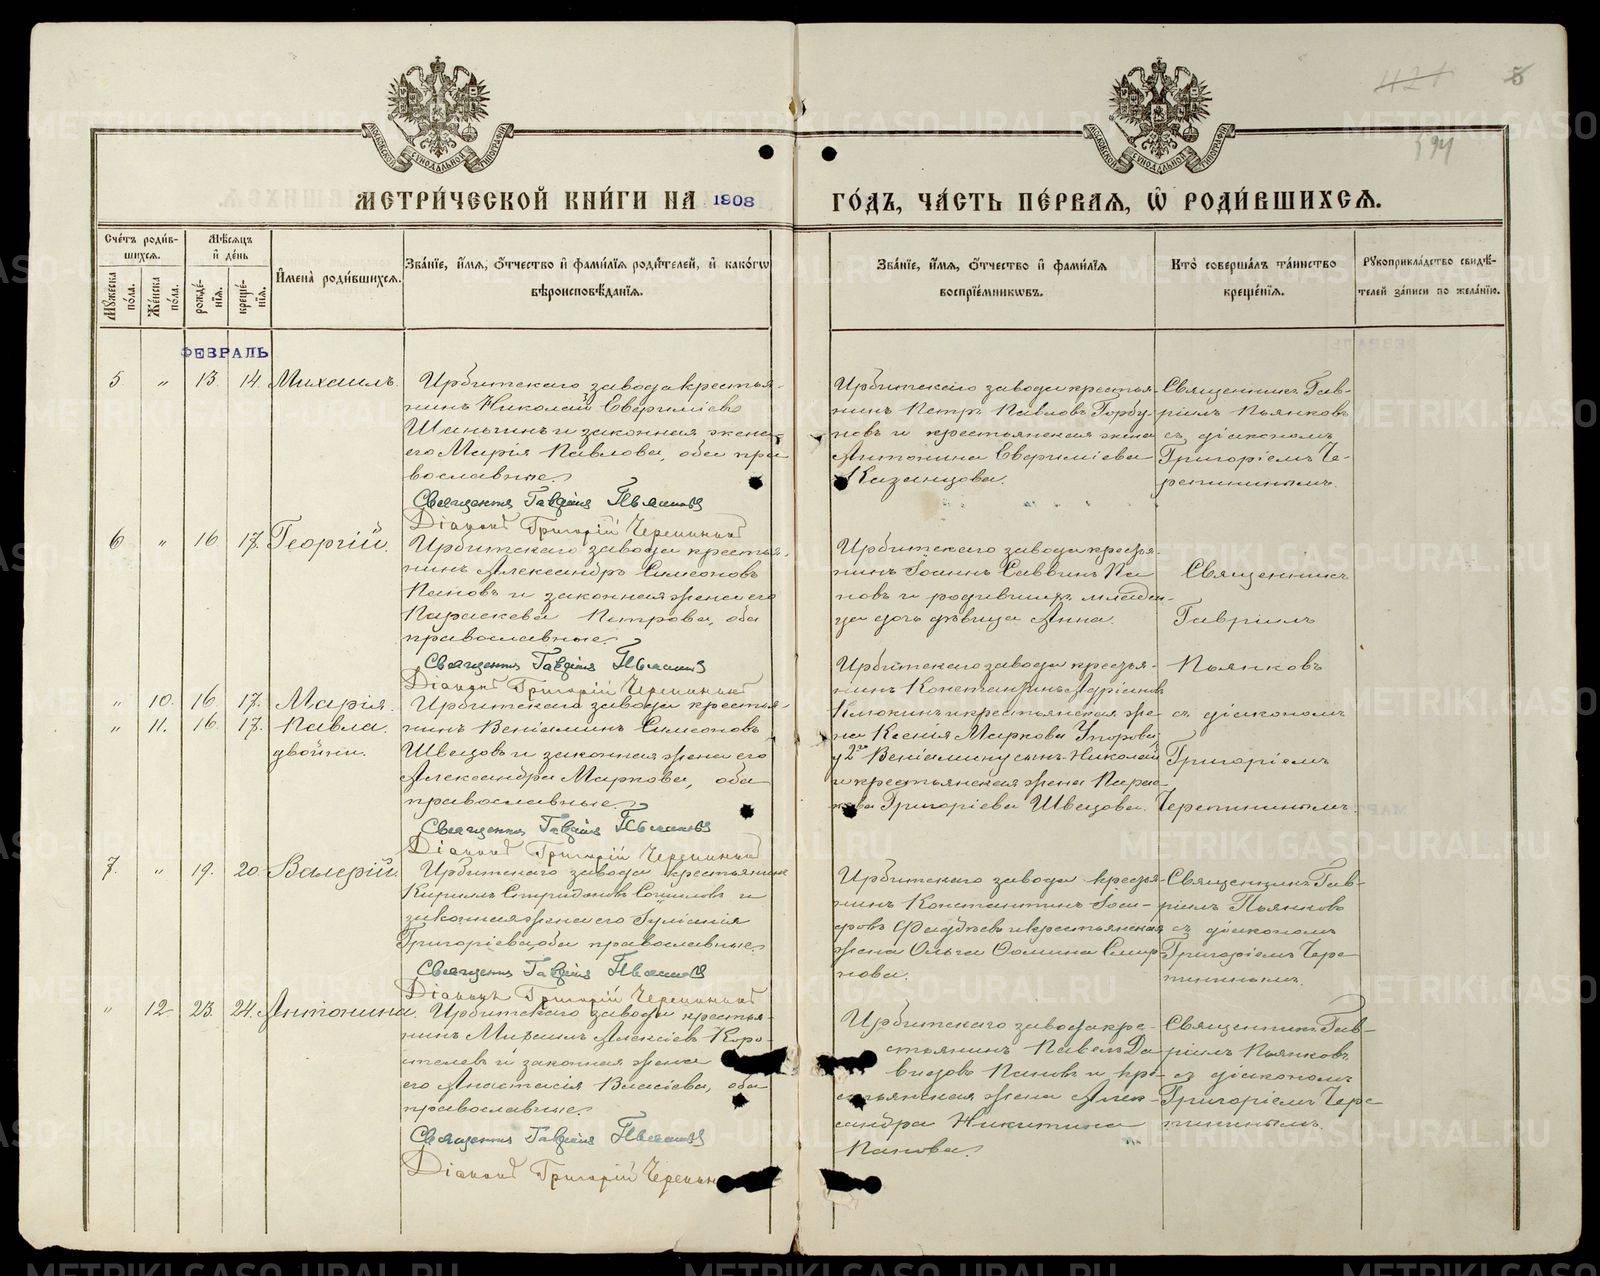 МОСКОВСКОЙ СѴНОДАЛЬНОЙ ТИПОГРАФІИ
МОСКОВСКОЙ СѴНОДАЛЬНОЙ ТИПОГРАФІИ
421
5
МЕТРИ́ЧЕСКОЙ КНИ́ГИ НА 1908
ГО́ДЪ, ЧА́СТЬ ПЕ́РВАЯ, Ѡ РОДИ́ВШИХСЯ.
Сче́тъ роди́в-
шихся.
Мужеска по́ла.
Же́нска по́ла.
Мѣ́сяцъ
и де́нь
рожде́-
нїя.
креще́-
нїя.
И҆мена̀ роди́вшихся.
Зва́нїе, и҆́мя, ѻ҆́тчество и҆ фамі́лїя роди́телей, и҆ како́гѡ
вѣроисповѣ́данїя.
Зва́нїе, и҆́мя, ѻ҆́тчество и҆ фамі́лїя
воспрїе́мникѡвъ.
Кто̀ соверша́лъ та́инство
креще́нїя.
Рукоприкла́дство свидѣ́-
телей за́писи по жела́нїю.
ФЕВРАЛЬ
5 „ 13. 14. Михаилъ.
Ирбитскаго завода крестья-
нинъ Николай Евфиміевъ
Шаньгинъ и законная жена
его Марія Павлова, оба пра
вославные.
Священникъ Гавріилъ Пьянковъ
Діаконъ Григорій Черепининъ
Ирбитскаго завода крестья-
нинъ Петръ Павловъ Горбу-
новъ и крестьянская жена
Антонина Евфиміева
Казанцова.
Священникъ Гав-
ріилъ Пьянковъ
съ діакономъ
Григоріемъ Че-
репининымъ.
6 „ 16 17. Георгій.
Ирбитскаго завода крестья-
нинъ Александръ Симеоновъ
Пановъ и законная жена его
Параскева Петрова, оба
православные.
Священникъ Гавріилъ Пьянковъ
Діаконъ Григорій Черепининъ
Ирбитскаго завода крестья-
нинъ Іоаннъ Саввинъ Па
новъ и родившихъ младен-
ца дочь дѣвица Анна.
Священникъ
Гавріилъ
Пьянковъ
съ діакономъ
Григоріемъ
Черепининымъ.
„ 10. 16. 17. Марія.
„ 11. 16. 17. Павла.
двойни.
Ирбитскаго завода крестья-
нинъ Веніаминъ Симеоновъ
Швецовъ и законная жена его
Александра Маркова, оба
православные.
Священникъ Гавріилъ Пьянковъ
Діаконъ Григорій Черепининъ
Ирбитскаго завода крестья-
нинъ Константинъ Адріановъ
Клюкинъ и крестьянская же-
на Ксенія Маркова
у 2й Веніамину сынъ Николай
и крестьянская жена Парас-
кева Григоріева Швецова.
7. „ 19. 20. Валерій.
Ирбитскаго завода крестьянинъ
Кириллъ Спиридоновъ и
законная жена его Іуліанія
Григоріева, оба православные.
Священникъ Гавріилъ Пьянковъ
Діаконъ Григорій Черепининъ
Ирбитскаго завода крестья-
нинъ Константинъ
и крестьянская
жена Ольга Ѳомина Смир
нова.
Священникъ Гав-
ріилъ Пьянковъ
съ діакономъ
Григоріемъ Чере
пининымъ.
„ 12. 23. 24. Антонина.
Ирбитскаго завода крестья-
нинъ Михаилъ Алексіевъ Коро-
стелевъ и законная жена
его Анастасія Власіева, оба
православные.
Священникъ Гавріилъ Пьянковъ
Діаконъ Григорій Черепининъ
Ирбитскаго завода кре-
стьянинъ Павелъ Да
видовъ Пановъ и кре-
стьянская жена Алек-
сандра Никитина
Панова.
Священникъ Гав-
ріилъ Пьянковъ
съ діакономъ
Григоріемъ Чере
пининымъ.
METRIKI.GASO-URAL.RU